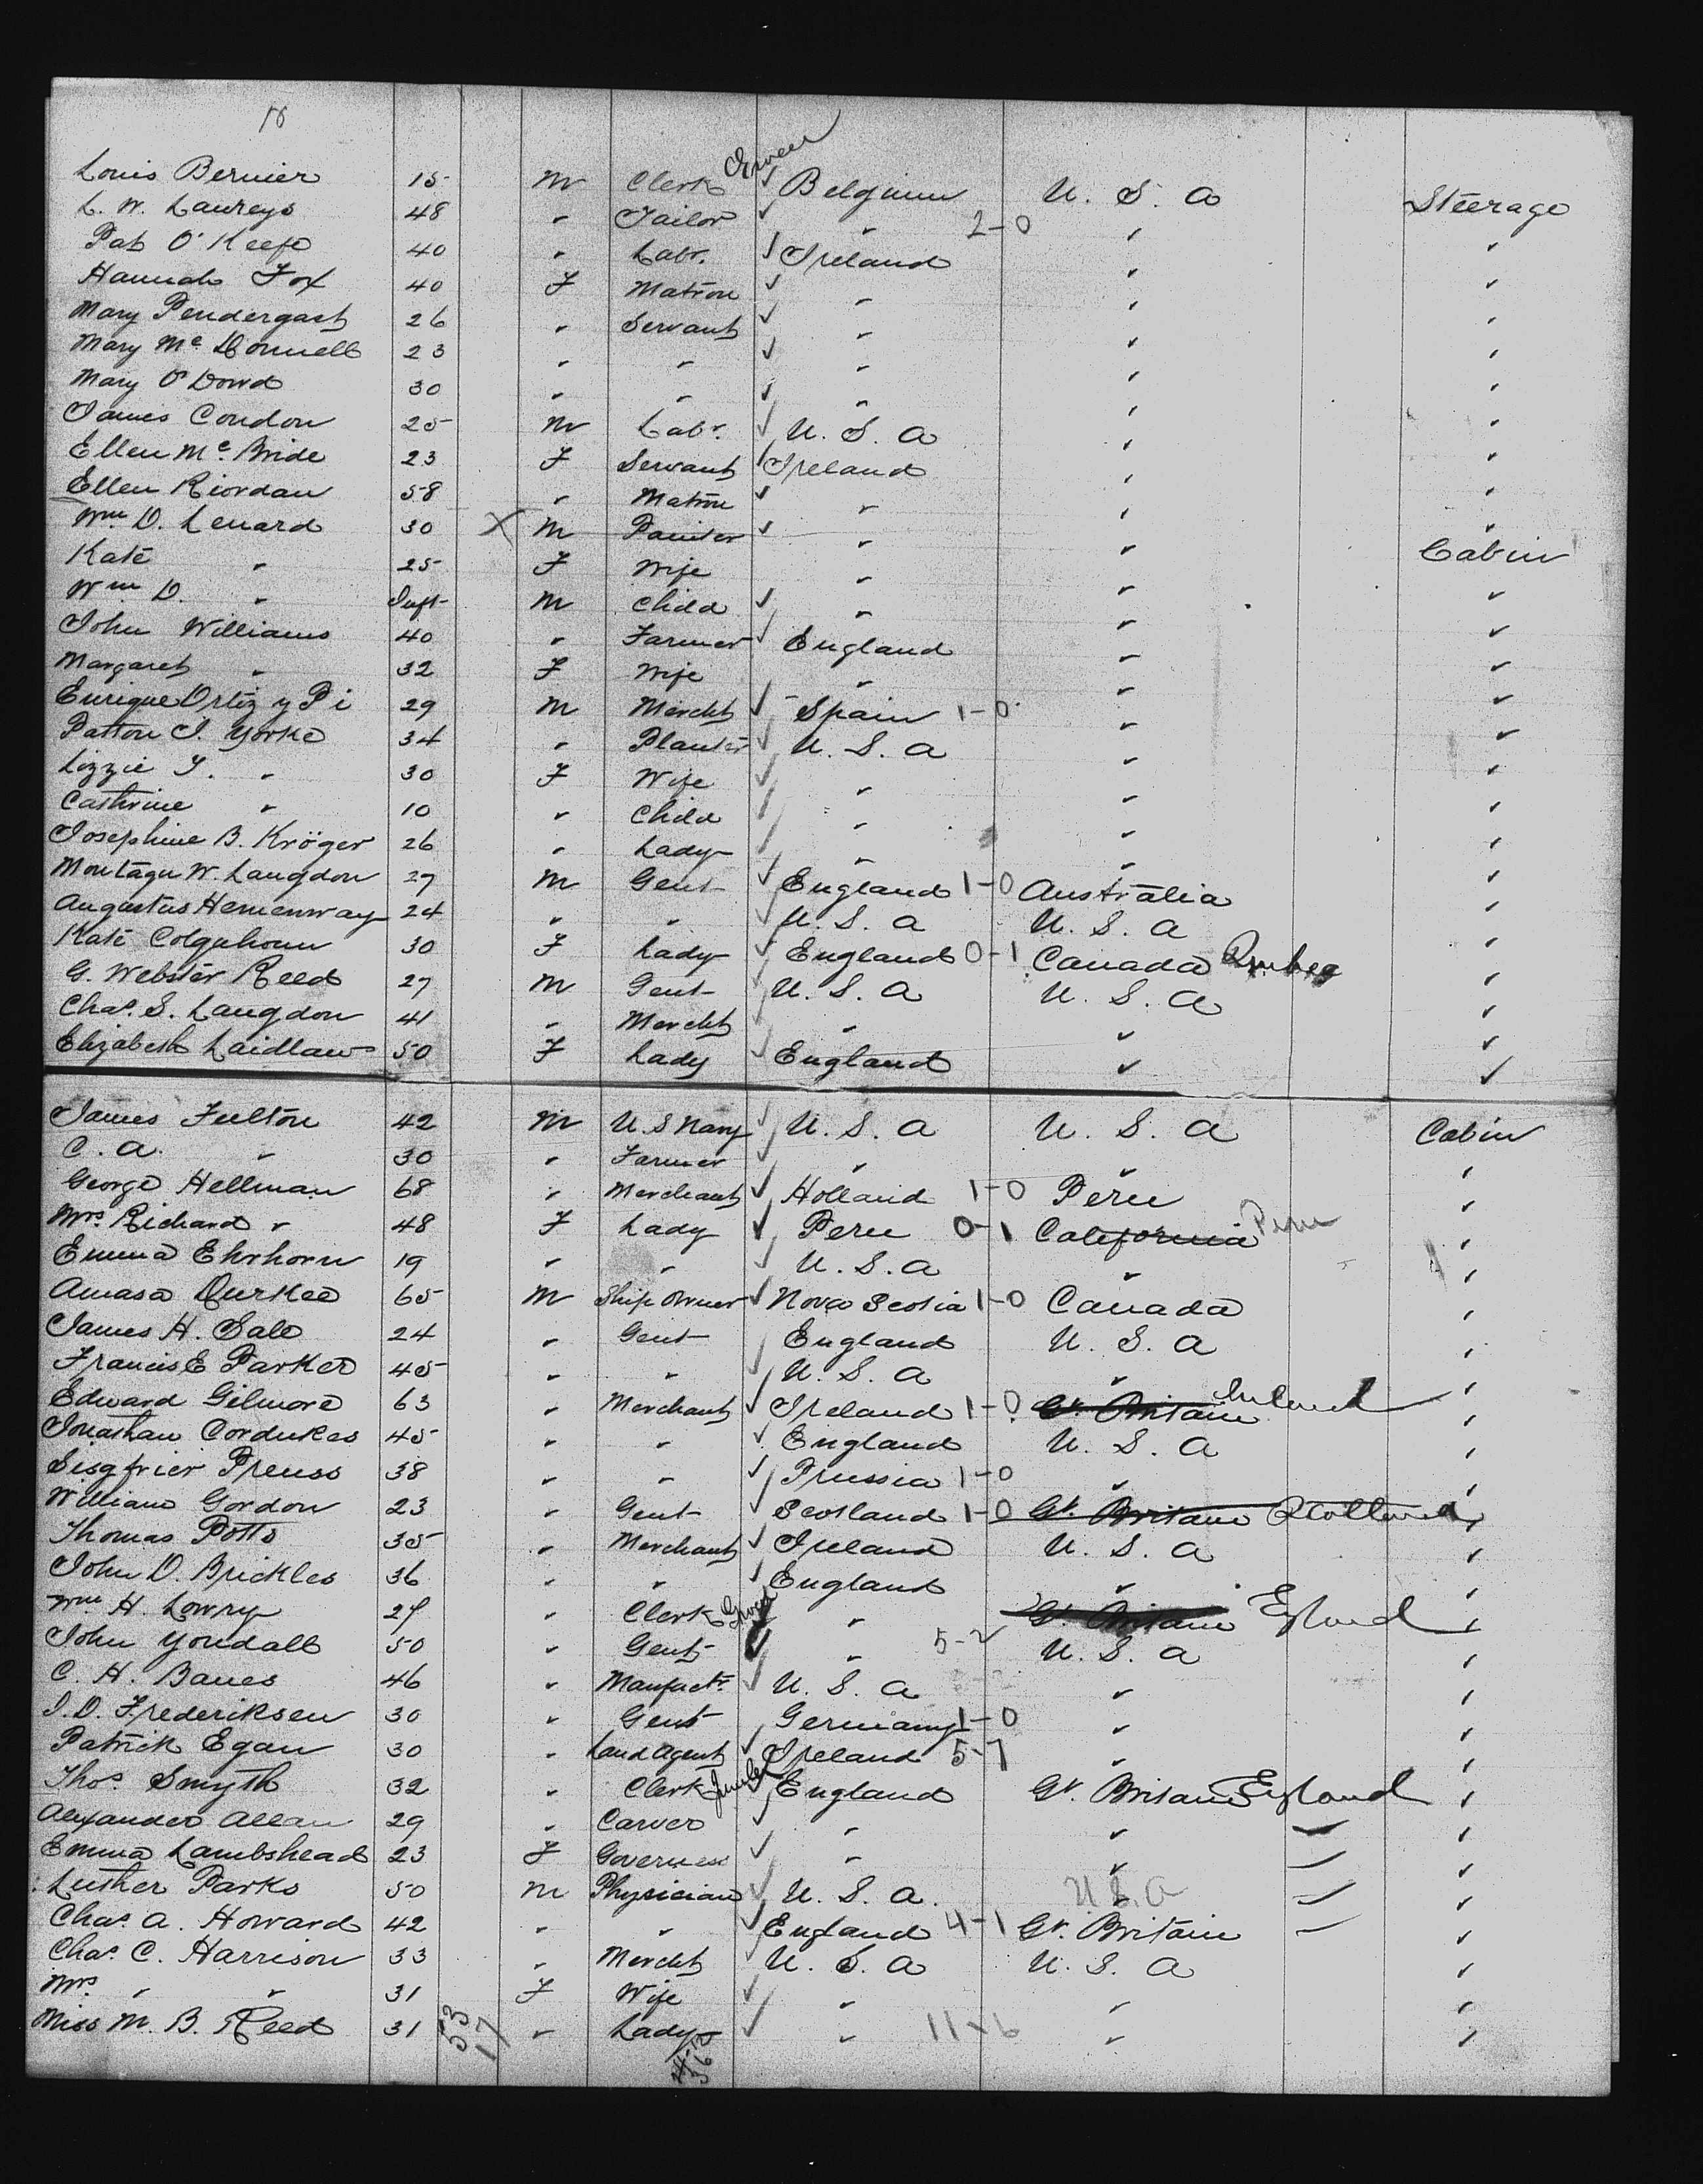 Louis Bernier 15 M Clerk Belgium U. S. A Steerage
L. W. Laureys 48 " Tailor " 2-0 " "
Pat O'Keefe 40 " Labr. Ireland " "
Hannah Fox 40 F Matron " " "
Mary Pendergast 26 " Servant " " "
Mary McDonnell 23 " " " " "
Mary O'Dowd 30 " " " " "
James Condon 25 M Labr. U. S. A " "
Ellen McBride 23 F Servant Ireland " "
Ellen Riordan 58 " Matron " " "
Wm D. Lenard 30 X M Painter " " Cabin
Kate " 25 F Wife " " "
Wm D. " Inft M Child " " "
John Williams 40 " Farmer England " "
Margaret " 32 F Wife " " "
Enrique Ortiz y Pi 29 M Mercht Spain 1-0 " "
Patton J. Yorke 34 " Planter U. S. A " "
Lizzie Y. " 30 F Wife " " "
Cathrine " 10 " Child " " "
Josephine B. Kröger 26 " Lady " " "
Montagu W. Langdon 27 M Gent England 1-0 Australia "
Augustus Hemenway 24 " " U. S. A U. S. A "
Kate Colquhoun 30 F Lady England 0-1 Canada Quebec "
G. Webster Reed 27 M Gent U. S. A U. S. A "
Chas. S. Langdon 41 " Mercht " " "
Elizabeth Laidlaw 50 F Lady England " "
James Fulton 42 M U. S Navy U. S. A U. S. A Cabin
C. A. " 30 " Farmer " " "
George Hellman 68 " Merchant Holland 1-0 Peru "
Mrs. Richard " 48 F Lady Peru 0-1 California Peru "
Emma Ehrhorn 19 " " U. S. A " "
Amasa Durkee 65 M Ship Owner Nova Scotia 1-0 Canada "
James H. Sale 24 " Gent England U. S. A "
Francis E Parker 45 " " U. S. A " "
Edward Gilmore 63 " Merchant Ireland 1-0 Gt. Britain Ireland "
Jonathan Cordukes 45 " " England U. S. A "
Sisgfrier Preuss 38 " " Prussia 1-0 " "
William Gordon 23 " Gent Scotland 1-0 Gt. Britain Scotland "
Thomas Potts 35 " Merchant Ireland U. S. A "
John D. Brickles 36 " " England " "
Wm H. Lowry 27 " Clerk Grocer " Gt. Britain England "
John Youdall 50 " Gent " 5-2 U. S. A "
C. H. Banes 46 " Manfactr. U. S. A " "
J. D. Frederiksen 30 " Gent Germany 1-0 " "
Patrick Egan 30 " Land Agent Ireland 5-7 " "
Thos. Smyth 32 " Clerk England Gt. Britain England "
Alexander Allan 29 " Carver " " "
Emma Lambshead 23 F Governess " " "
Luther Parks 50 M Physician U. S. A. U S. A "
Chas. A. Howard 42 " " England 4-1 Gt. Britain "
Chas. C. Harrison 33 " Mercht U. S. A U. S. A "
Mrs. " " 31 F Wife " " "
Miss M. B. Reed 31 " Lady " 11-6 " "
53
17